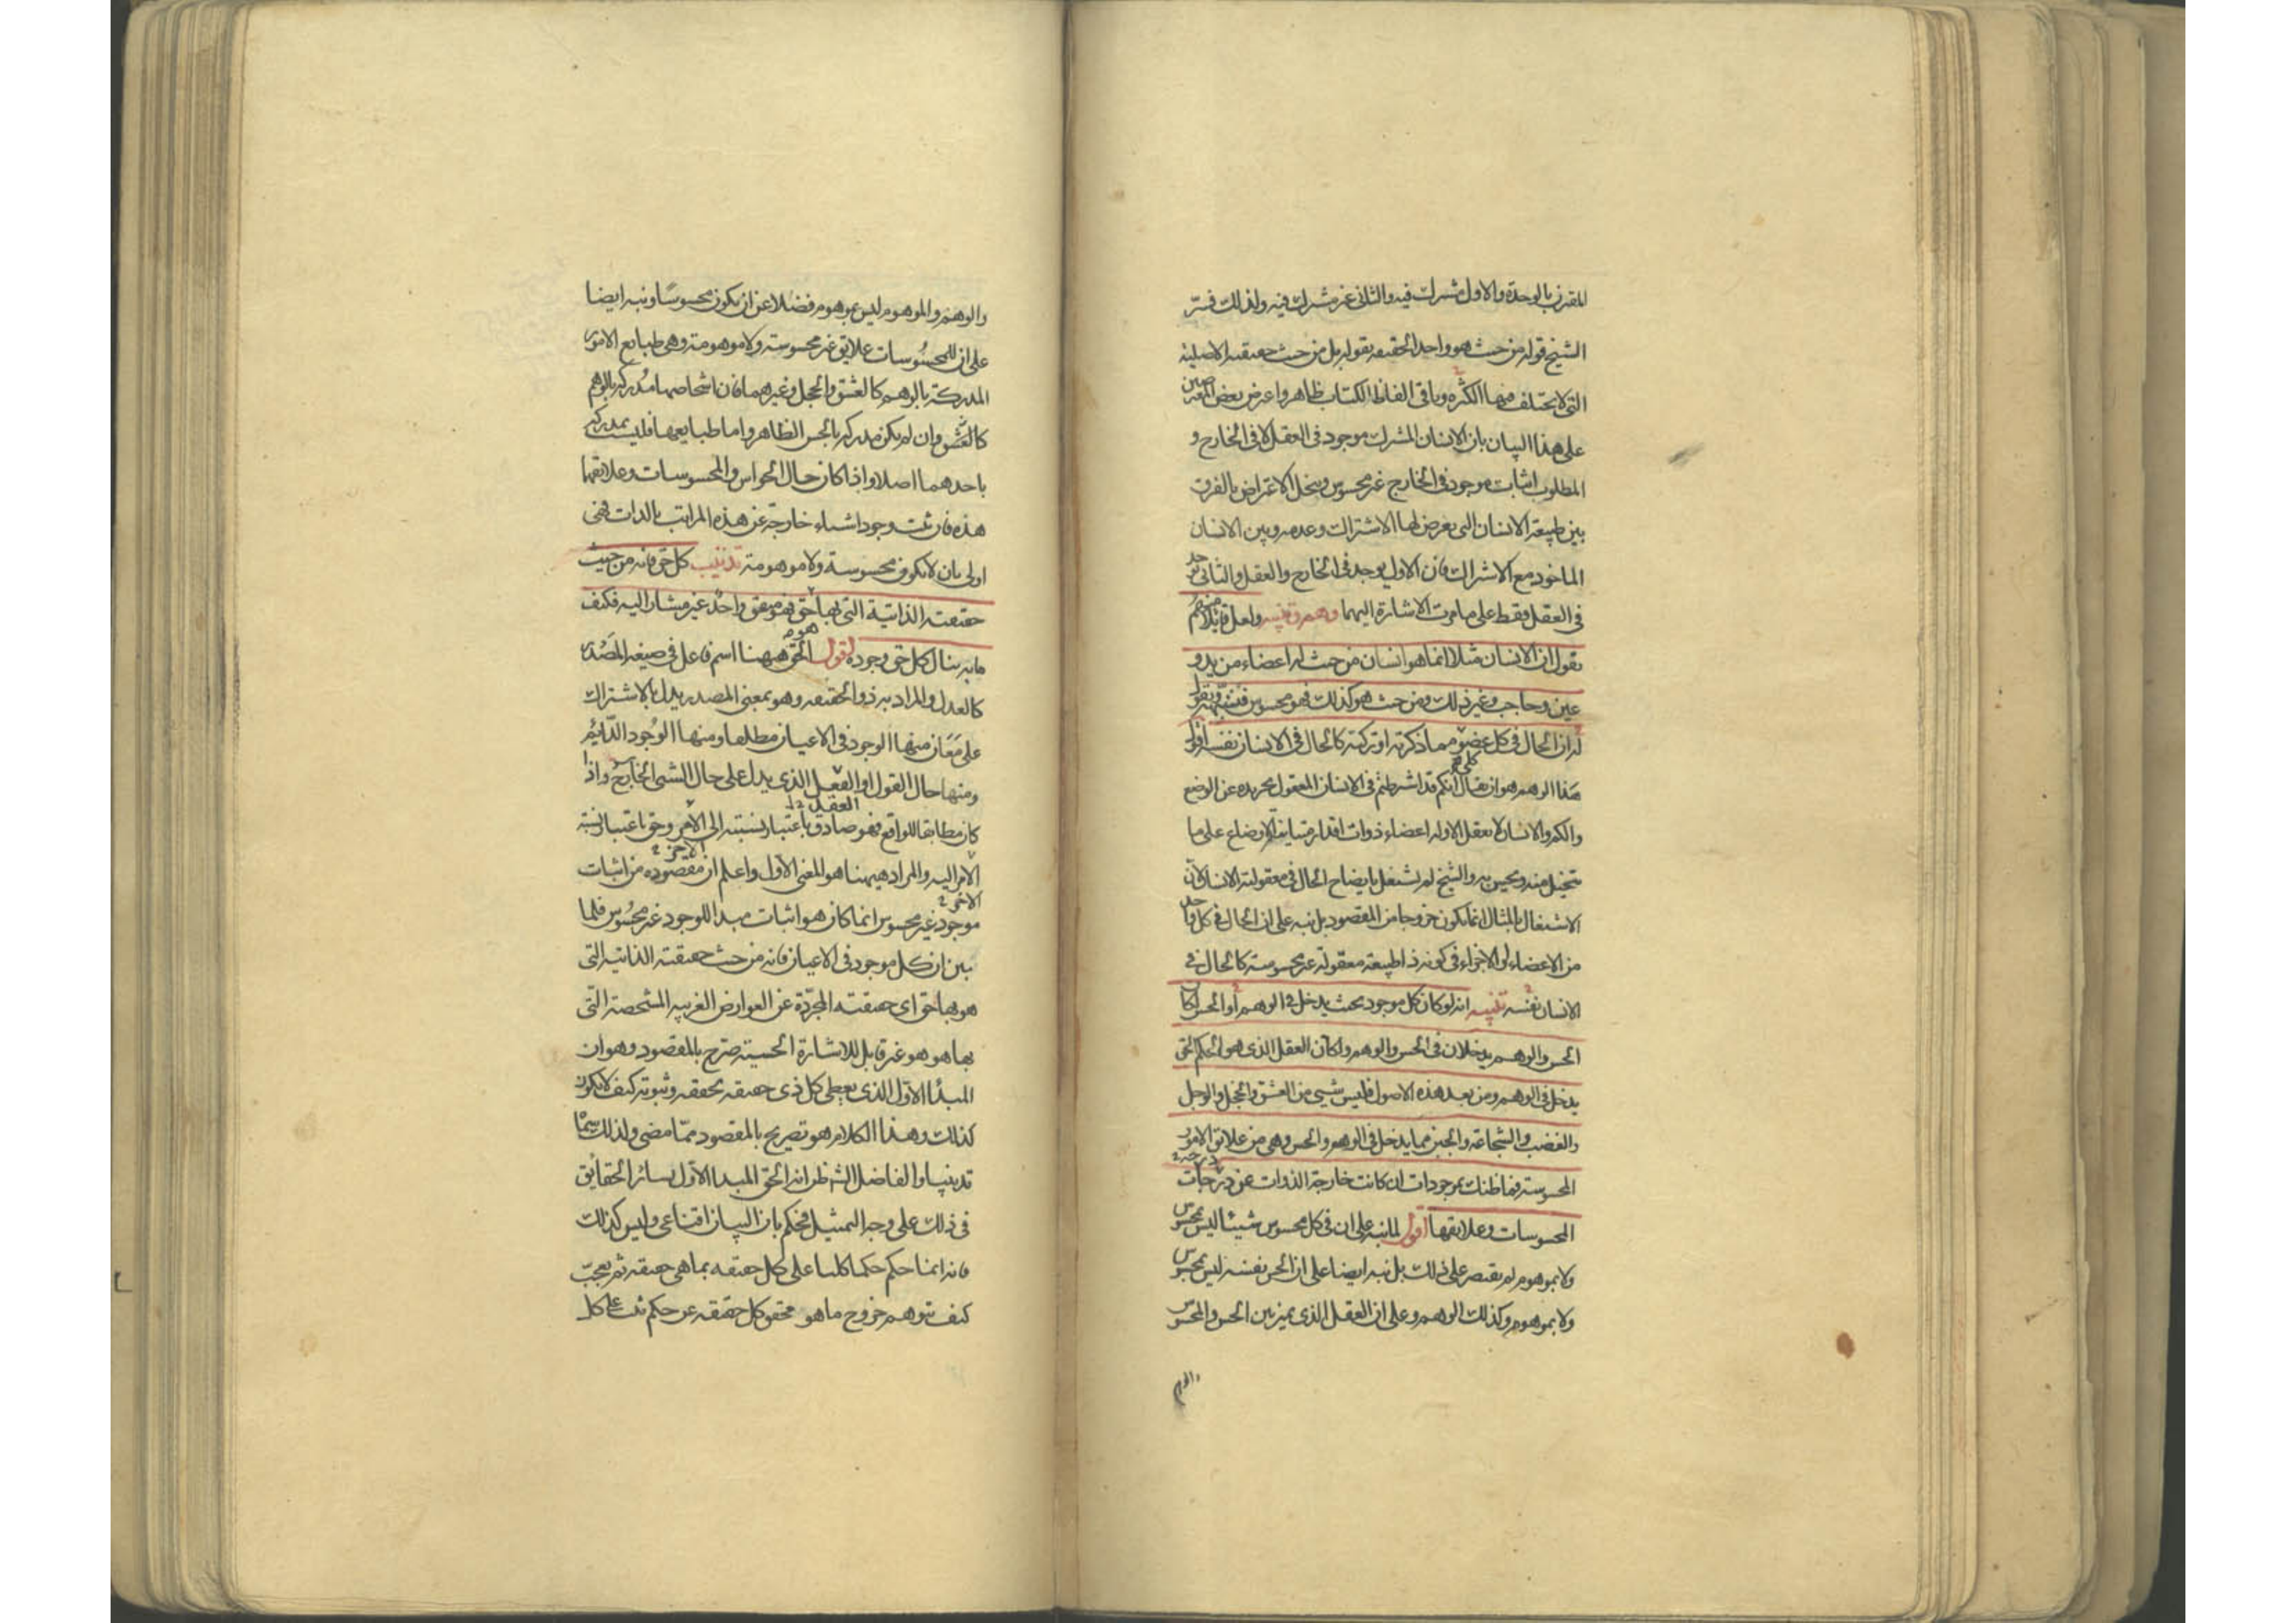 المقترن بالوحدة والاول مشترك فيه والثاني غير مشترك فيه ولذلك فسّر
الشيخ قوله من حيث هو واحد الحقيقة بقوله بل من حيث حقيقته الاصلية
التي لا تختلف فيها الكثرة وباقي الفاظ الكتاب ظاهر واعترض بعض المعترضين
على هذا البيان بان الانسان المشترك موجود في العقل لا في الخارج و
المطلوب اثبات موجود في الخارج غير محسوس وينحل الاعتراض بالفرق
بين طبيعة الانسان التي يعرض لها الاشتراك وعدمه وبين الانسان
الماخوذ مع الاشتراك فان الاول يوجد في الخارج والعقل والثاني يوجد
في العقل فقط على ما مرت الاشارة اليهما وهم وتنبيه ولعل قائلا منهم
يقول ان الانسان مثلا انما هو انسان من حيث له اعضاء من يد و
عين وحاجب وغير ذلك ومن حيث هو كذلك فهو محسوس فننبّهه ونقول
له ان الحال في كل عضو مما ذكرته او تركته كالحال في الانسان نفسه اقول
هذا الوهم هو ان يقال انكم قد اشترطتم في الانسان المعقول تجريده عن الوضع
والكم والانسان لا يعقل الا وله اعضاء ذوات اقدار متباينة الاوضاع على ما
يتخيل منه ويحس به والشيخ لم يشتغل بايضاح الحال في معقولية الانسان لان
الاشتغال بالمثال انما يكون خروجا من المقصود بل نبه على ان الحال في كل واحد
من الاعضاء او الاجزاء في كونه ذا طبيعة معقولة غير محسوسة كالحال في
الانسان نفسه تنبيه انه لو كان كل موجود بحيث يدخل في الوهم او الحس لكان
الحس والوهم يدخلان في الحس والوهم ولكان العقل الذي هو الحكم الحق
يدخل في الوهم ومن بعد هذه الاصول فليس شيئ من العشق والخجل والوجل
والغضب والشجاعة والجبن مما يدخل في الوهم والحس وهي من علايق الامور
المحسوسة فما ظنك بموجودات ان كانت خارجة الذوات عن درجات
المحسوسات وعلايقها اقول لما نبه على ان في كل محسوس شيئا ليس بمحسوس
ولا بموهوم لم يقتصر على ذلك بل نبه ايضا على ان الحس نفسه ليس بمحسوس
ولا بموهوم وكذلك الوهم وعلى ان العقل الذي يميز بين الحس والمحسوس
والوهم
والوهم والموهوم ليس بموهوم فضلا عن ان يكون محسوسًا ونبه ايضا
على ان للمحسُوسات علايق غير محسوسة ولا موهومة وهي طبايع الامور
المدركة بالوهم كالعشق والخجل وغيرهما فان اشخاصها مُدركة بالوهم
كالعَشق وان لم يكن مدركه بالحس الظاهر واما طبايعها فليست بمدركة
باحدهما اصلا واذا كان حال الحواس والمحسوسات وعلايقها
هذه فان ثبت وجود اشياء خارجة عن هذه المراتب بالذات فهي
اولى بان لا يكون محسوسة ولا موهومة تذنيب كل حق فانه من حيث
حقيقته الذاتية التي بها حق فهو متفق واحدٌ غير مشار اليه فكيف
ما به ينال كل حق وجوده اقول الحق ههنا اسم فاعل في صيغة المَصْدر
كالعدل والمراد به ذو الحقيقه وهو بمعنى المصدر يدل بالاشتراك
على مَعَان منها الوجود في الاعيان مطلقا ومنها الوُجود الدّايمُ
ومنها حال القول او العقل الذي يدل على حال الشيئ الخارج واذا
كان مطابقا للواقع فهو صادق باعتبار نسبته الى الامر وحق باعتبار نسبة
الامر اليه والمراد ههنا هو المعنى الاول واعلم ان مقصوده من اثبات
موجود غير محسوس انما كان هو اثبات مبدا للوجود غير محسُوس فلما
بين ان كل موجود في الاعيان فانه من حيث حقيقته الذاتيه التي
هو بها حق اي حقيقته المجرّدة عن العوارض الغريبه المشخصة التّي
بها هو هو غير قابل للاشارة الحسيته صرح بالمقصود وهو ان
المبدأ الاوّل الذي يعطى كل ذي حقيقه تحققه وثبوته كيف لا يكون
كذلك وهذا الكلام هو تصريح بالمقصود ممّا مضى ولذلك سمّاه
تذنيبا والفاضل الش ظن انه الحق المبدا الاوّل بسائر الحقايق
في ذلك على وجه التمثيل فحكم بان البيان اقناعي وليس كذلك
فانه انما حكم حكما كليا على كل حقيقه بما هي حقيقه ثم تعجبّ
كيف يتوهم خروج ما هو محقق كل حقيقه عن حكم ثبت على كل